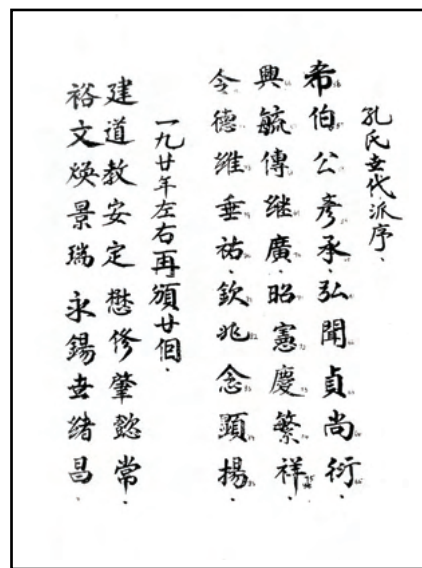 孔氏世代派序.
希伯公彥承.弘聞貞尚衍.
興毓傳继廣.昭憲慶繁祥.
令德維垂祐.欽兆念顕揚.
一九廿年左右再頒廿個.
建道教安定 懋修肇懿常.
裕文焕景瑞 永錫世绪昌.